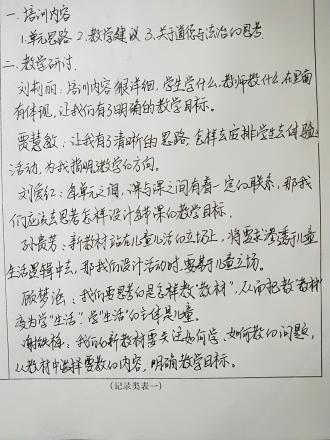 一.培训内容
1.单元思路 2.教学建议 3.关于道德与法治的思考.
二.教学研讨.
刘莉丽:培训内容很详细,学生学什么,教师教什么,在里面
有体现,让我们有了明确的教学目标.
贾慧敏:让我有了清晰的思路,怎样去安排学生去体验
活动,为我指明教学的方向.
刘爱红:每单元之间,课与课之间有着一定的联系,那我
们应该去思考怎样设计每节课的教学目标.
孙贵芳:新教材站在儿童生活的立场上,将要求渗透于儿童
生活逻辑中去,那我们设计活动时,要基于儿童立场.
顾梦池:我们要思考的是怎样教"教材",从而把教"教材"
变为学"生活".学"生活"的主体是儿童.
谢桂梅:我们的新教材要关注如何学,如何教的问题,
从教材中选择要教的内容,明确教学目标.
(记录类表一)